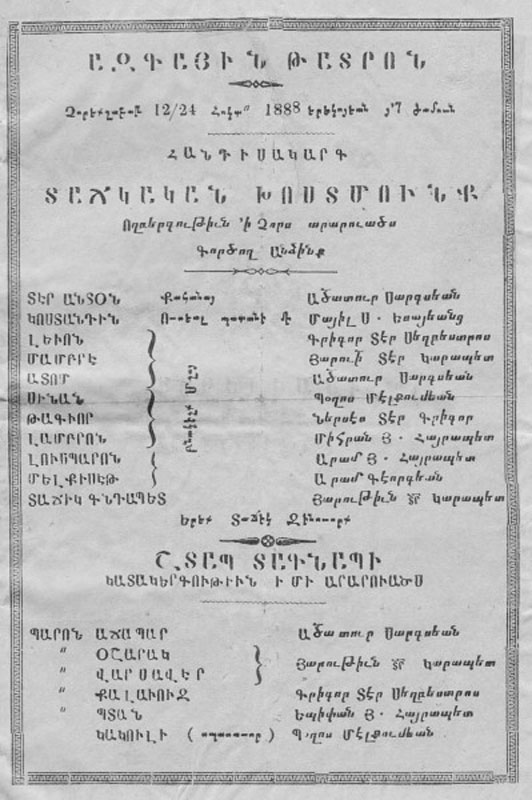 ԱԶԳԱՅԻՆ ԹԱՏՐՈՆ
Չորեքշաբթի 12/24 Հոկտ" 1888 երեկոյեան ժ՚7 ժամուն
ՀԱՆԴԻՍԱԿԱՐԳ
ՏԱՃԿԱԿԱՆ ԽՈՍՏՄՈՒՆՔ
Ողբերգութիւն ՚ի Չորս արարուածս
Գործող Անձինք
ՏԵՐ ԱՆՏՕՆ Քահանայ Ածատուր Սարգսեան
ԿՈՍՏԱՆԴԻՆ պատանի Մայիլ Ս. Եսայեանց
ԼԵՒՈՆ Գրիգոր Տէր Սեղբեստրոս
ՄԱՄԲՐԷ Յարութի Տէր Կարապետ
ԱՏՈՄ Ածատուր Սարգսեան
ՍԻՆԱՆ Պօղոս Մէլքումեան
ԹԱԳԻՈՐ Ներսէս Տէր Գրիգոր
ԼԱՄԲՐՈՆ Միհրան Յ. Հայրապետ
ԼՈՒՍՊԱՐՈՆ Արամ Յ. Հայրապետ
ՄԵԼՔԻՍԵԹ Արամ Գէորգեան
ՏԱՃԻԿ ԳՆԴԱՊԵՏ Յարութիւն Կարապետ
Երեք Տաճիկ Զինուորք
ՇՏԱՊ ՏԱԳՆԱՊԻ
ԿԱՏԱԿԵՐԳՈՒԹԻՒՆ Ի ՄԻ ԱՐԱՐՈՒԱԾՍ
ՊԱՐՈՆ ԱՃԱՊԱՐ Ածատուր Սարգսեան
" ՕՇԱՐԱԿ
" ՎԱՐՍԱՎԵՐ Յարութիւն Կարապետ
" ՔԱԼԱՒՈՒԶ Գրիգոր Տէր Սեղբեստրոս
" ՊՏԱՆ Եպիփան Յ. Հայրապետ
ԿԱԿՈՒԼԻ (սպասաւոր) Պօղոս Մէլքումեան